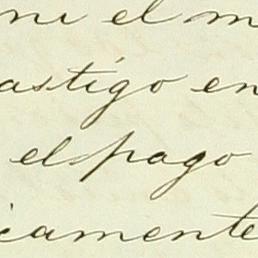 ni el m
astigo en
el pago
icamente